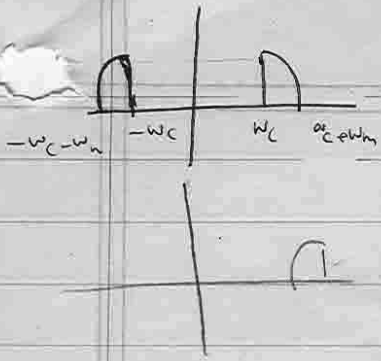 -w_c-w_m -w_c w_c w_c+w_m